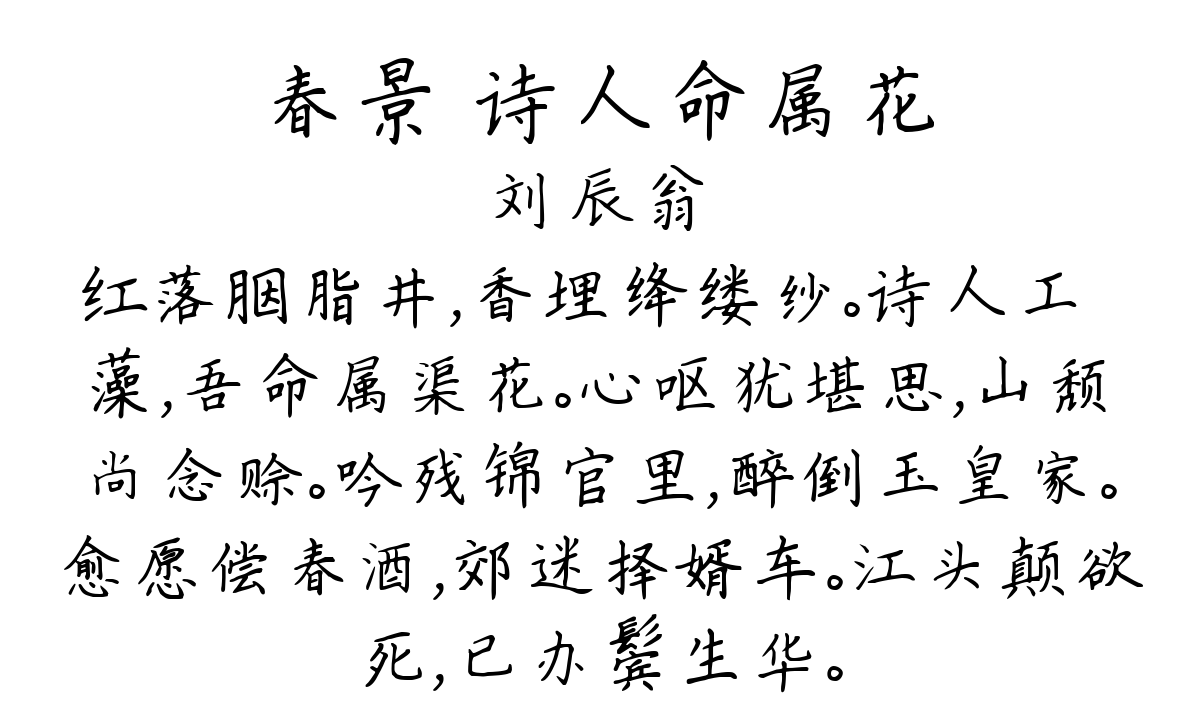 春景 诗人命属花
刘辰翁
红落胭脂井,香埋绛缕纱。诗人工
藻,吾命属渠花。心呕犹堪思,山颓
尚念赊。吟残锦官里,醉倒玉皇家。
愈愿偿春酒,郊迷择婿车。江头颠欲
死,已办鬓生华。